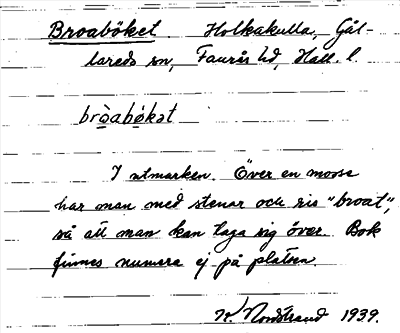 Broaböket. Holkakulla, Gäl-
lareds sn, Faurås hd, Hall. l.
bròabökət
I utmarken. Över en mosse
har man med stenar och ris "broat",
så att man kan taga sig över. Bok
finnes numera ej på platsen.
Nordstrand 1939.